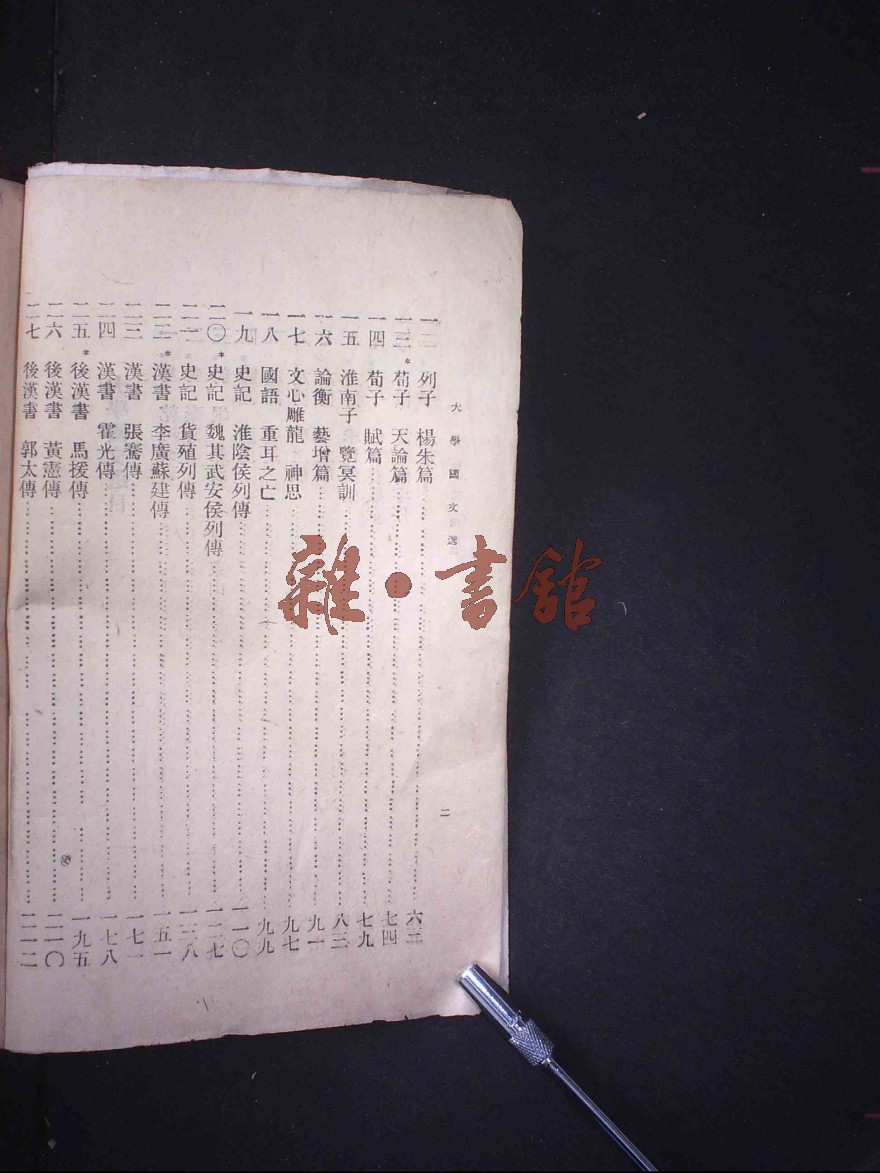 大學國文選
二
一二 列子 楊朱篇……六三
一三* 荀子 天論篇……七四
一四 荀子 賦篇……七九
一五 淮南子 覽冥訓……八三
一六 論衡 藝增篇……九一
一七 文心雕龍 神思……九七
一八 國語 重耳之亡……九九
一九 史記 淮陰侯列傳……一一〇
二〇* 史記 魏其武安侯列傳……一二七
二一* 史記 貨殖列傳……一三八
二二* 漢書 李廣蘇建傳……一五一
二三 漢書 張騫傳……一七一
二四 漢書 霍光傳……一七八
二五* 後漢書 馬援傳……一九五
二六 後漢書 黃憲傳……二一〇
二七 後漢書 郭太傳……二一二
雜·書館